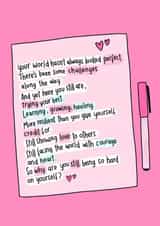 Your world hasn't always looked perfect
There's been some challenges
along the way
And yet here you still are,
trying your best
Learning, growing, healing
More resilient than you give yourself
credit for
Still showing love to others
Still facing the world with courage
and heart
So why are you still being so hard
on yourself?